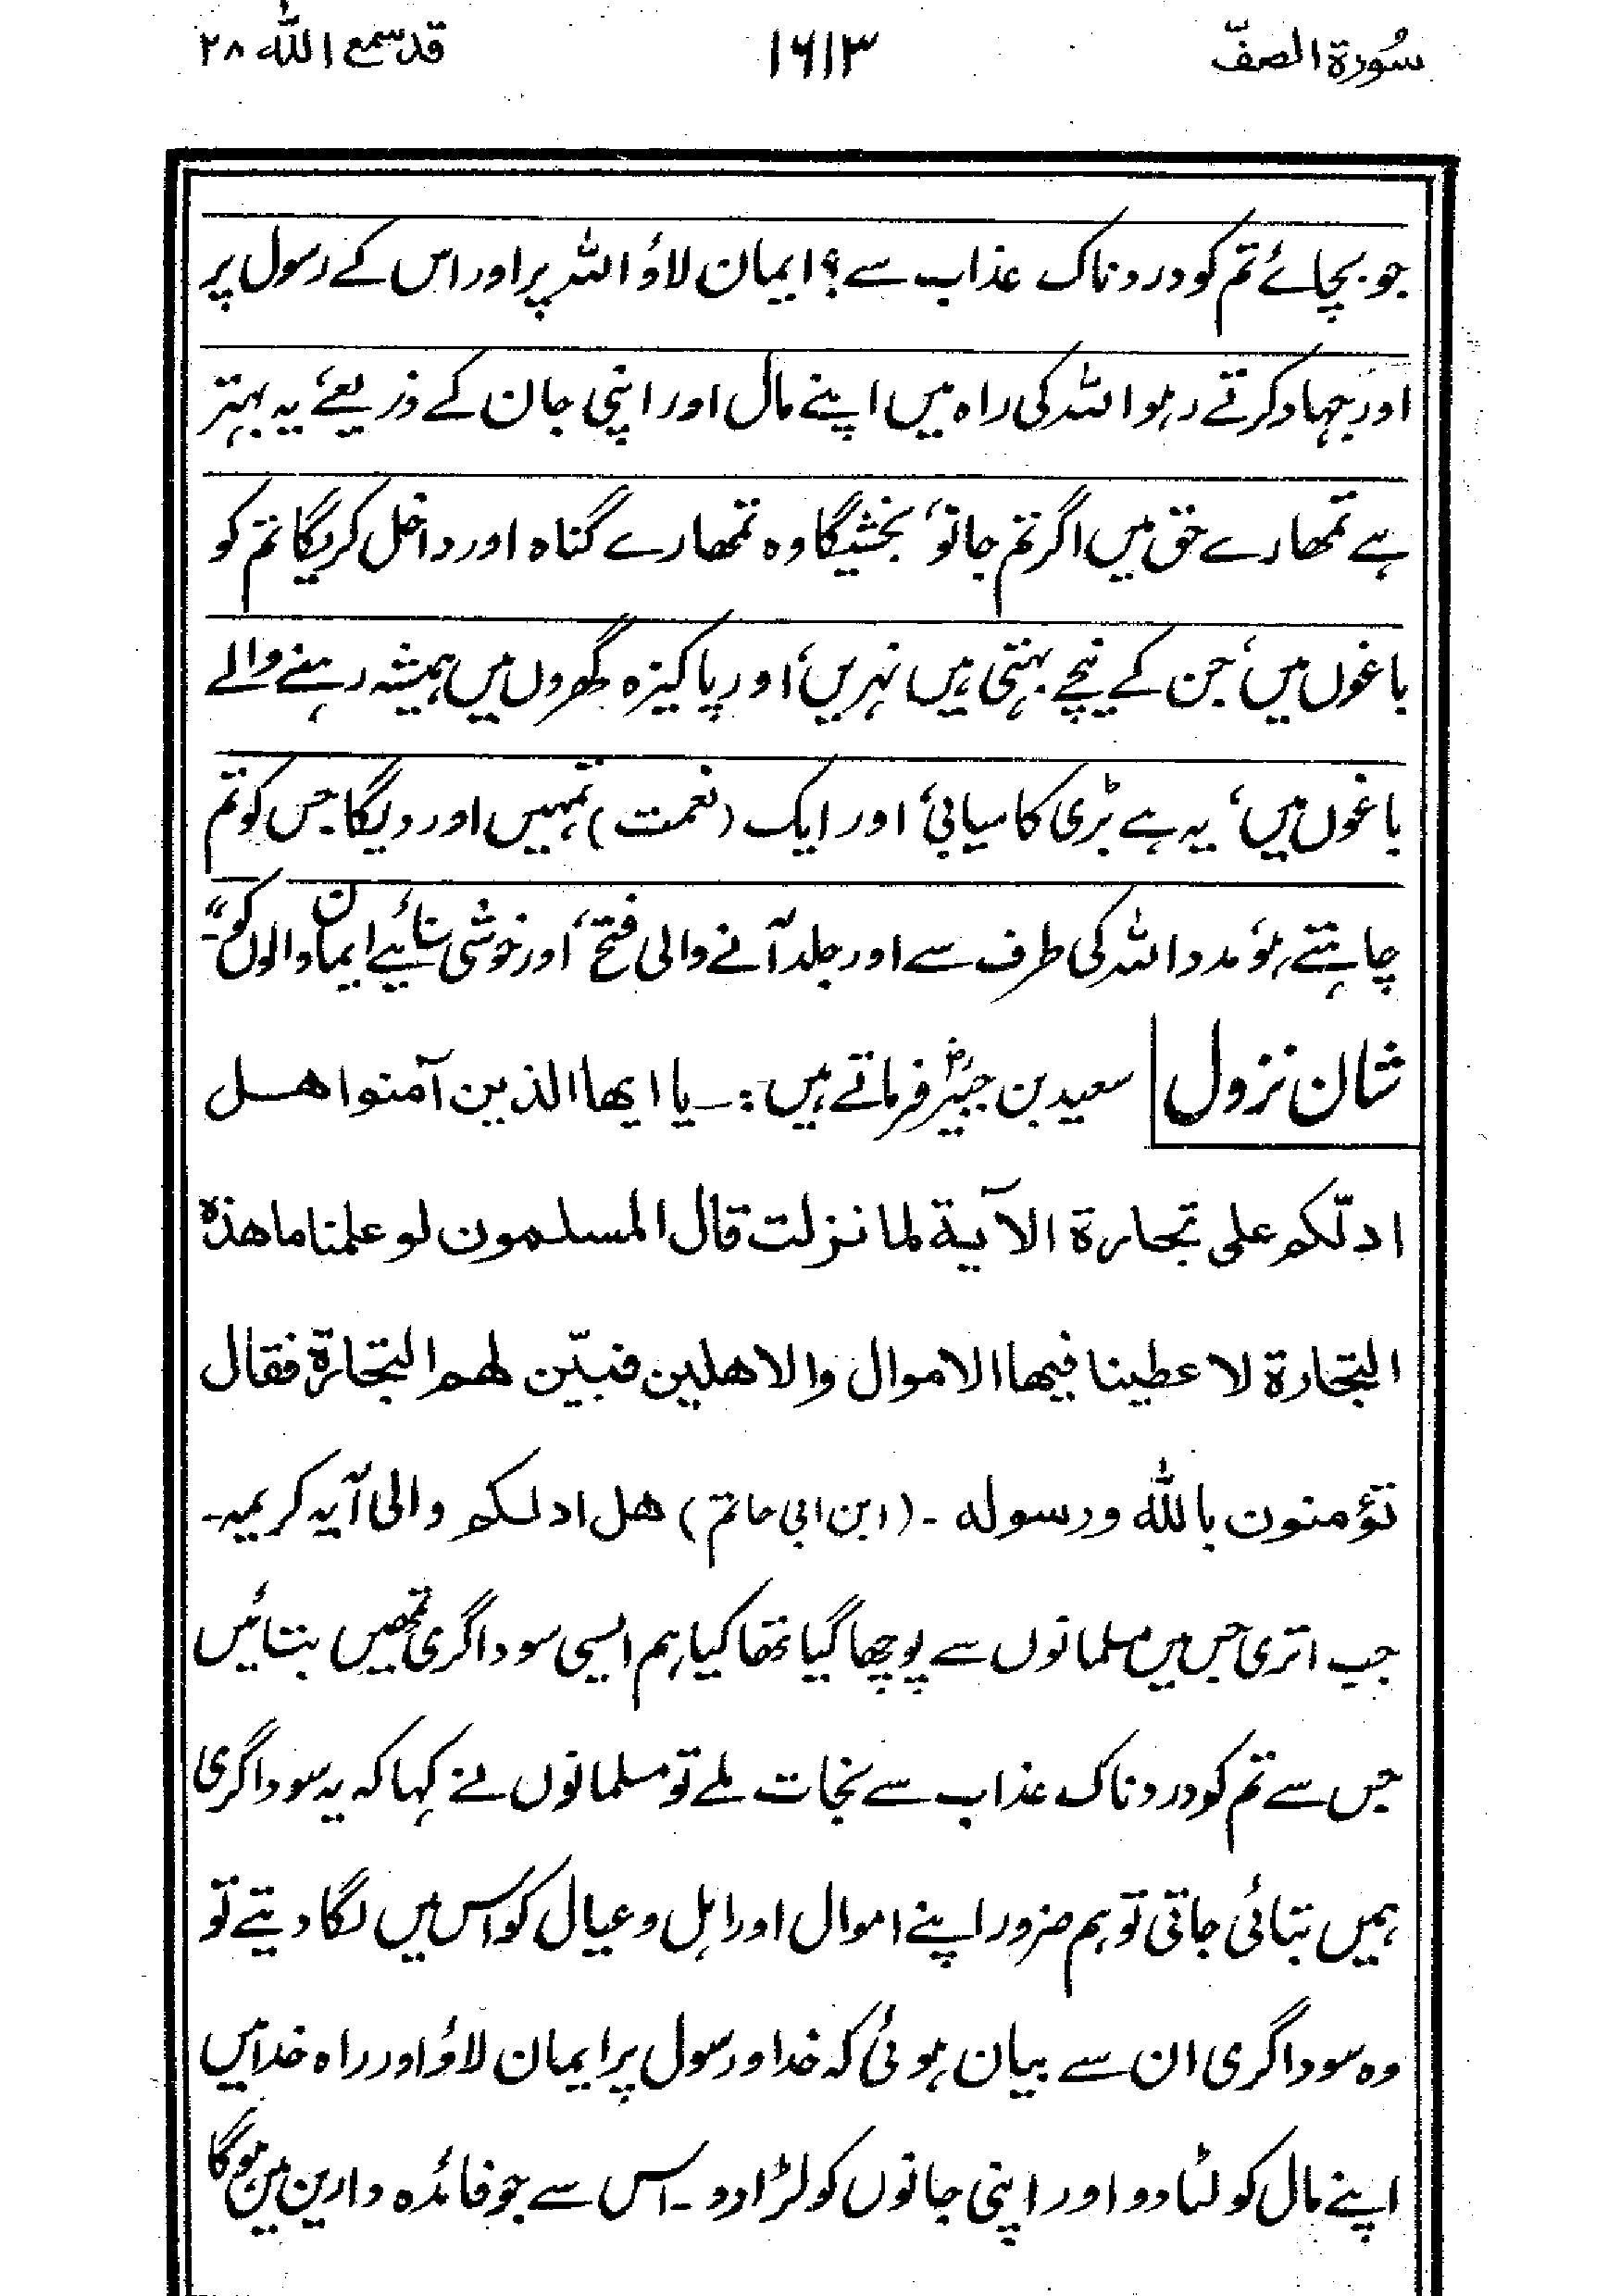 سُورة الصفّ ۱۶۱۳ قد سمع اللّٰه ۲۸
جو بچائے تم کو دردناک عذاب سے؟ ایمان لاؤ اللہ پر اور اس کے رسول پر
اور جہاد کرتے رہو اللہ کی راہ میں اپنے مال اور اپنی جان کے ذریعے، یہ بہتر
ہے تمھارے حق میں اگر تم جانو، بخشیگا وہ تمھارے گناہ اور داخل کریگا تم کو
باغوں میں، جن کے نیچے بہتی ہیں نہریں، اور پاکیزہ گھروں میں ہمیشہ رہنے والے
باغوں میں، یہ ہے بڑی کامیابی، اور ایک (نعمت) تمہیں اور دیگا جس کو تم
چاہتے ہو، مدد اللہ کی طرف سے اور جلد آنے والی فتح، اور خوشی سنائیے ایمان والوں کو"۔
شان نزول سعید بن جبیرؓ فرماتے ہیں :۔ یا ایھا الذین آمنوا ھل
ادلّکم علی تجارة الآیة لما نزلت قال المسلمون لو علمنا ما هذه
التجارة لاعطینا فیها الاموال والاهلین فبیّن لهم التجارة فقال
تؤمنون باللّٰه ورسوله ۔ (ابن ابی حاتم) هل ادلکم والی آیہ کریمہ۔
جب اتری جس میں مسلمانوں سے پوچھا گیا تھا کیا ہم ایسی سوداگری تمھیں بتائیں
جس سے تم کو دردناک عذاب سے نجات ملے تو مسلمانوں نے کہا کہ یہ سوداگری
ہمیں بتائی جاتی تو ہم ضرور اپنے اموال اور اہل و عیال کو اس میں لگا دیتے تو
وہ سوداگری ان سے بیان ہوئی کہ خدا و رسول پر ایمان لاؤ اور راہ خدا میں
اپنے مال کو لٹا دو اور اپنی جانوں کو لڑا دو ۔ اس سے جو فائدہ دارین میں ہوگا